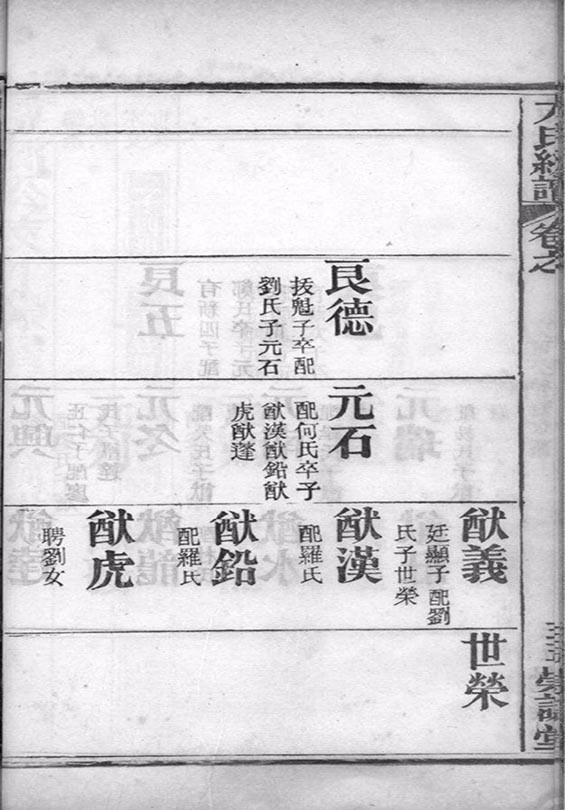 卷之
良德
技魁子卒配
劉氏子元石
元石
配何氏卒子
猷漢猷鉛猷
虎猷蓬
猷義
廷顯子配劉
氏子世榮
猷漢
配羅氏
猷鉛
配羅氏
猷虎
聘劉女
世榮